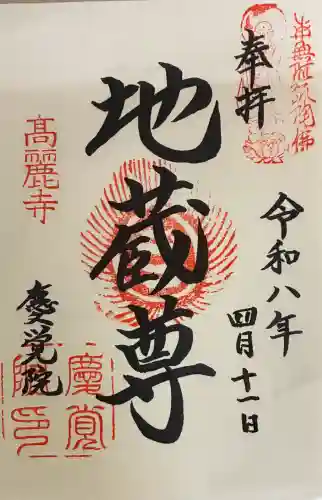 奉拝
令和八年
四月十一日
地蔵尊
髙麗寺
慶覚院
慶覚
院印